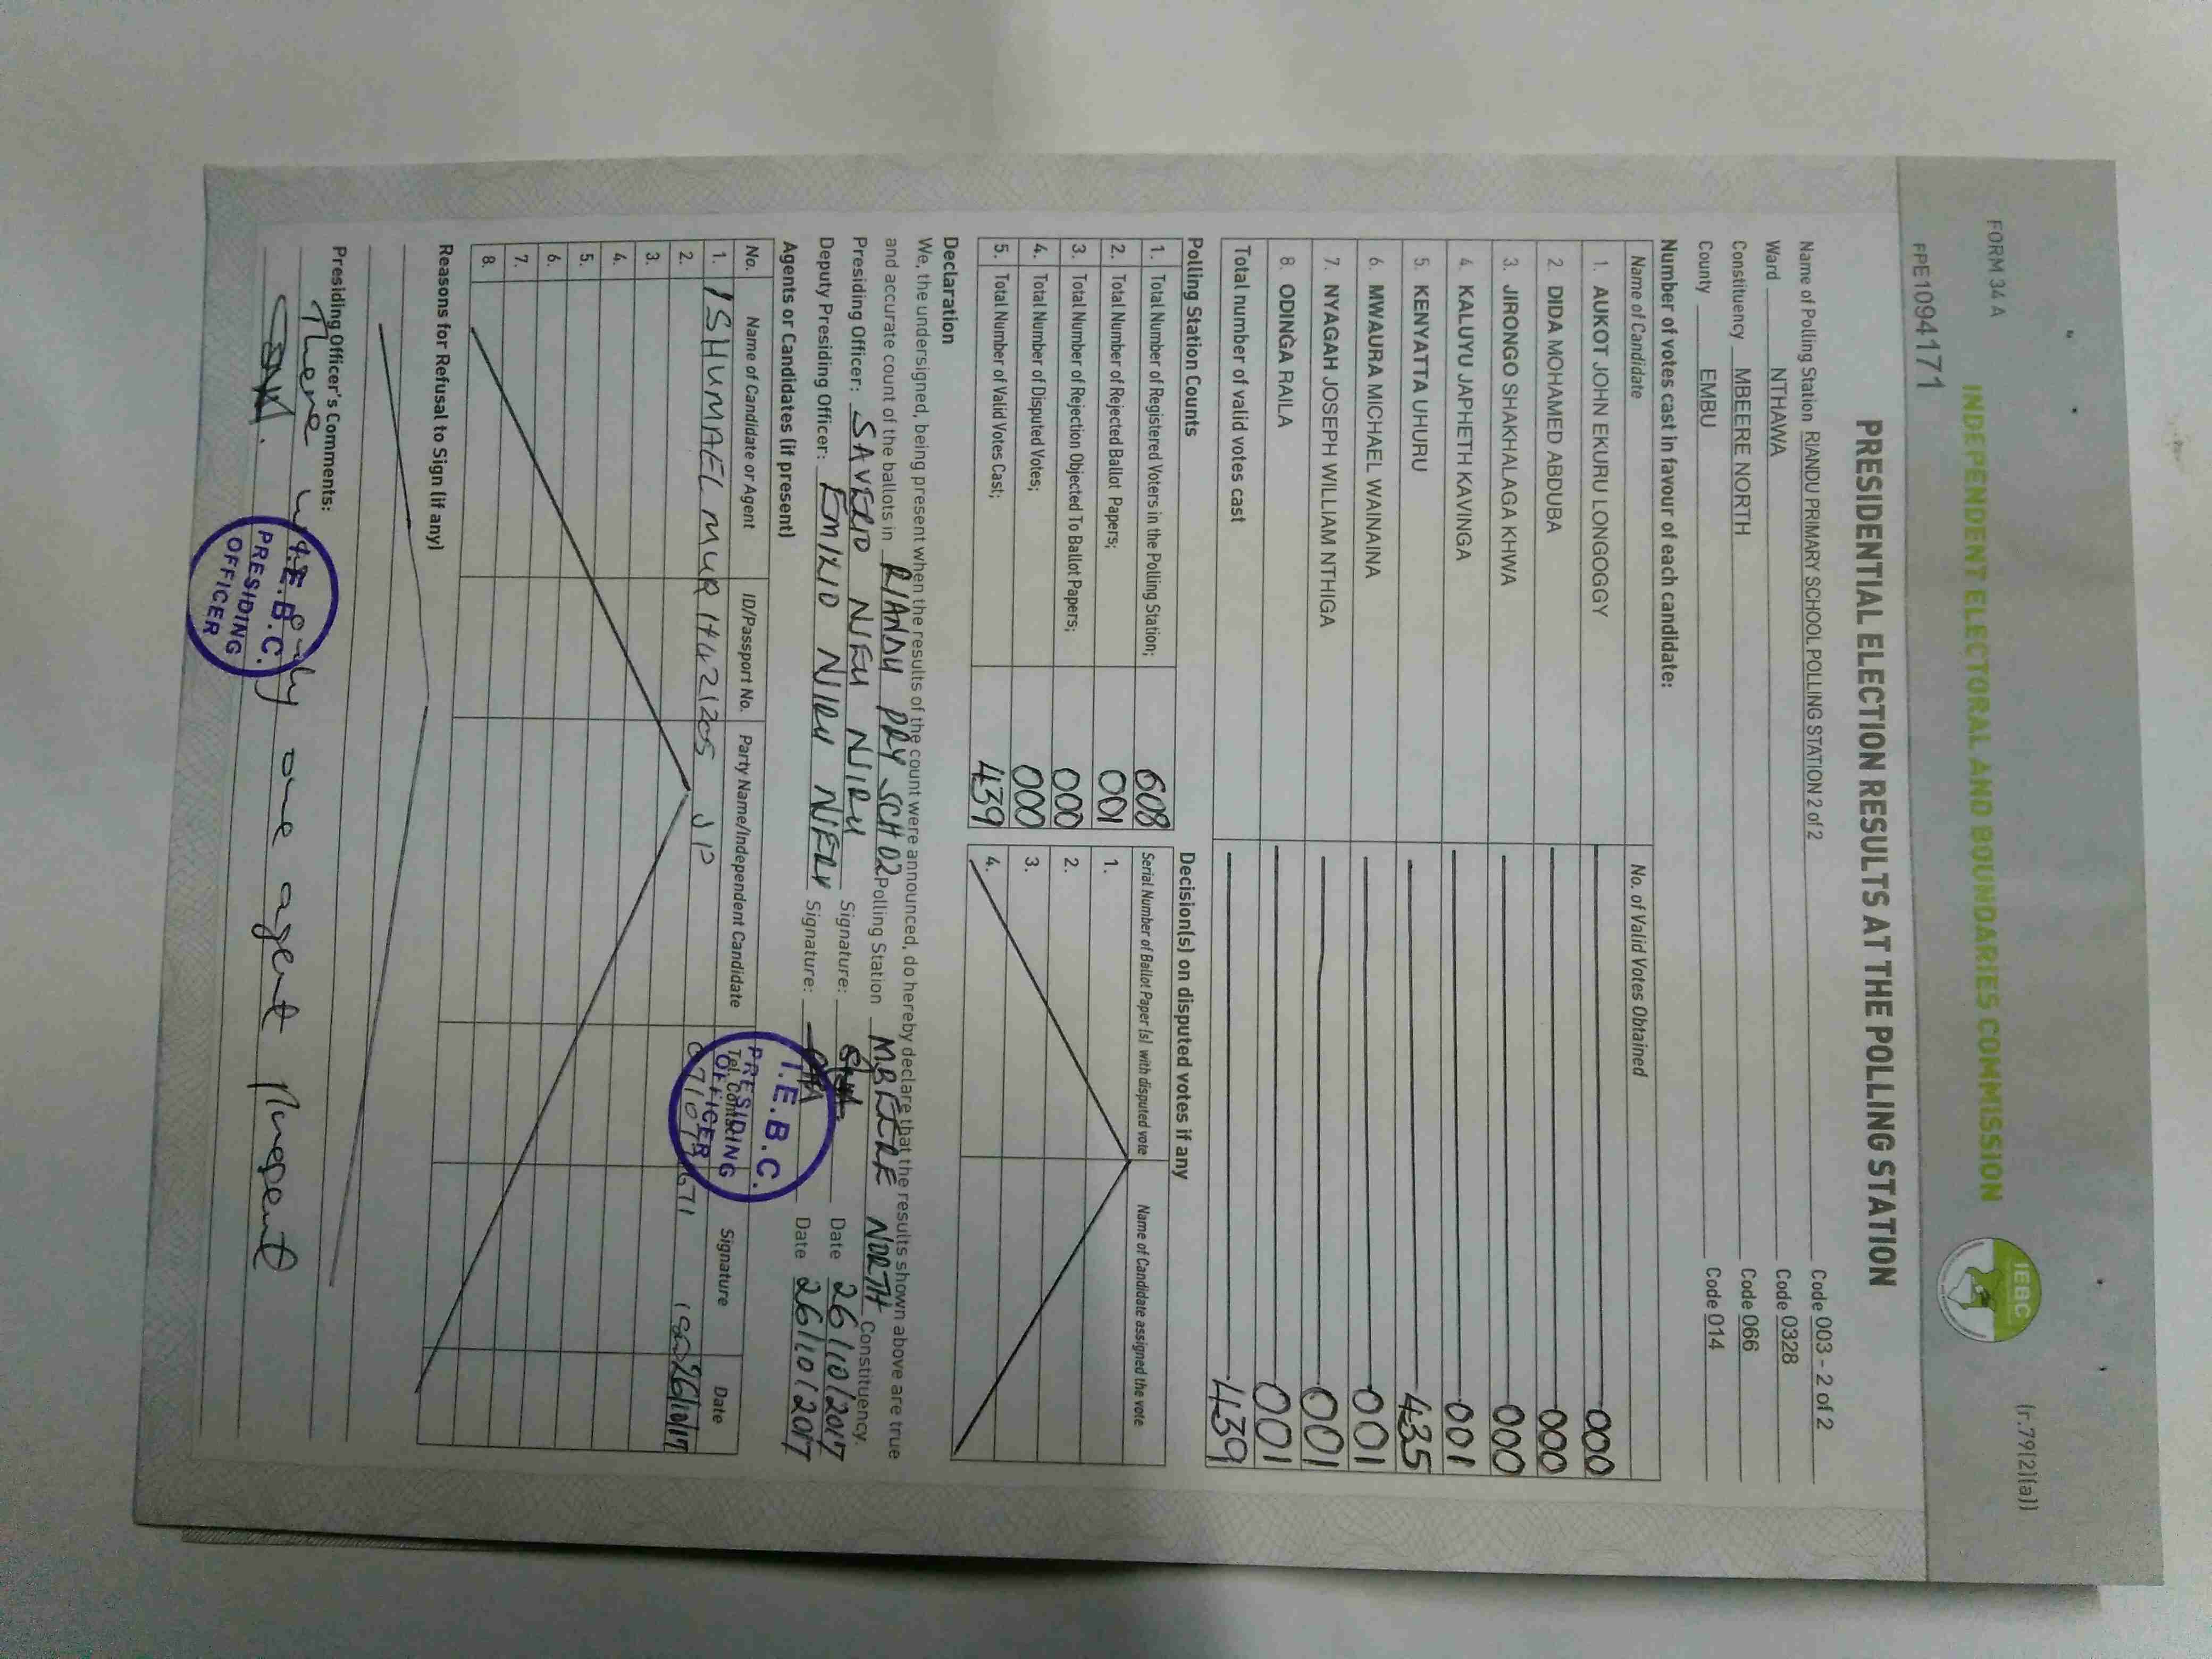 FORM 34 A
(r.79(2)(a))
INDEPENDENT ELECTORAL AND BOUNDARIES COMMISSION
IEBC
FPE1094171
PRESIDENTIAL ELECTION RESULTS AT THE POLLING STATION
Name of Polling Station RIANDU PRIMARY SCHOOL POLLING STATION 2 of 2 Code 003 - 2 of 2
Ward NTHAWA Code 0328
Constituency MBEERE NORTH Code 066
County EMBU Code 014
Number of votes cast in favour of each candidate:
Name of Candidate No. of Valid Votes Obtained
1. AUKOT JOHN EKURU LONGOGGY 000
2. DIDA MOHAMED ABDUBA 000
3. JIRONGO SHAKHALAGA KHWA 000
4. KALUYU JAPHETH KAVINGA 001
5. KENYATTA UHURU 435
6. MWAURA MICHAEL WAINAINA 001
7. NYAGAH JOSEPH WILLIAM NTHIGA 001
8. ODINGA RAILA 001
Total number of valid votes cast 439
Polling Station Counts
1. Total Number of Registered Voters in the Polling Station; 608
2. Total Number of Rejected Ballot Papers; 001
3. Total Number of Rejection Objected To Ballot Papers; 000
4. Total Number of Disputed Votes; 000
5. Total Number of Valid Votes Cast; 439
Decision(s) on disputed votes if any
Serial Number of Ballot Paper (s) with disputed vote Name of Candidate assigned the vote
1.
2.
3.
4.
Declaration
We, the undersigned, being present when the results of the count were announced, do hereby declare that the results shown above are true
and accurate count of the ballots in RIANDU PRY SCH 02 Polling Station MBEERE NORTH Constituency.
Presiding Officer: SAVERIO NJEU NJIRU Signature: Date 26/10/2017
Deputy Presiding Officer: EMILIO NJIRU NJERU Signature: Date 26/10/2017
Agents or Candidates (if present)
No. Name of Candidate or Agent ID/Passport No. Party Name/Independent Candidate Tel. Contact Signature Date
1. ISHUMAEL MUR 14421205 JP 26/10/17
2.
3.
4.
5.
6.
7.
8.
I.E.B.C.
PRESIDING
OFFICER
Reasons for Refusal to Sign (if any)
Presiding Officer's Comments:
There was only one agent present
I.E.B.C.
PRESIDING
OFFICER